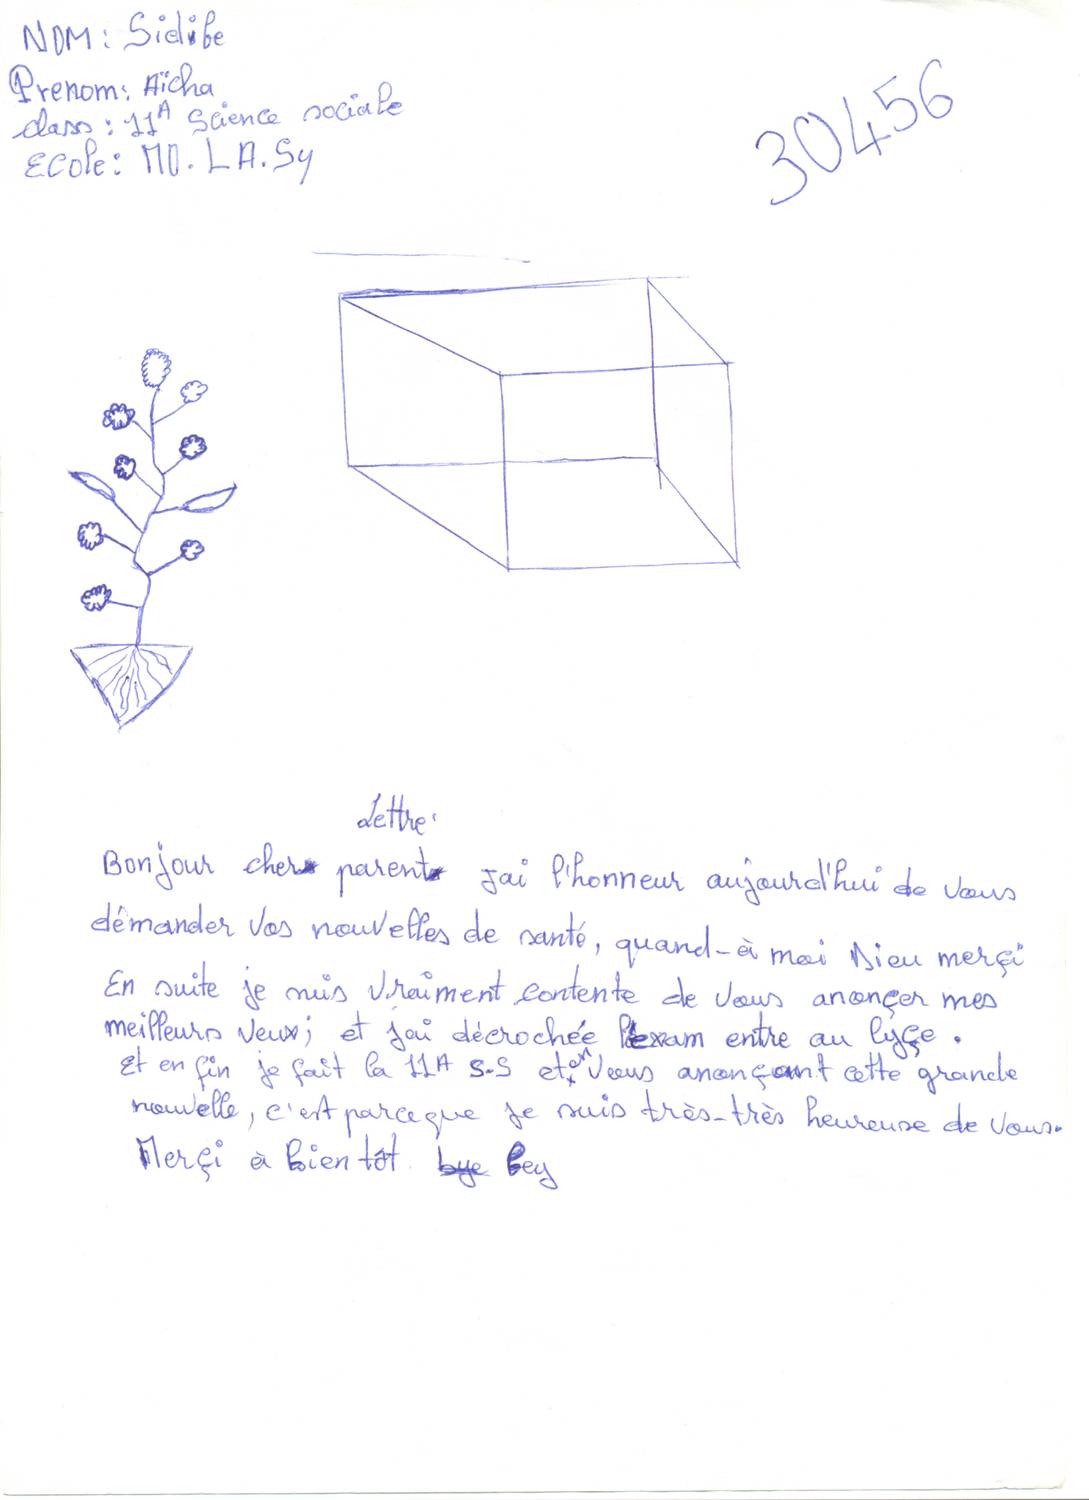 NOM: Sidibe
Prenom: Aïcha
class: 11A Science sociale
Ecole: MO.LA.Sy
30456
Lettre:
Bonjour cher parent jai l'honneur aujourd'hui de vous
démander vos nouvelles de santé, quand-à moi Dieu merçi
En suite je suis vraiment contente de vous anonçer mes
meilleurs veux; et j'ai décrochée l'exam entre au lyçe.
Et en fin je fait la 11A S.S et en vous anonçant cette grande
nouvelle, c'est parceque je suis très-très heureuse de vous.
Merçi à bientôt. bye bey